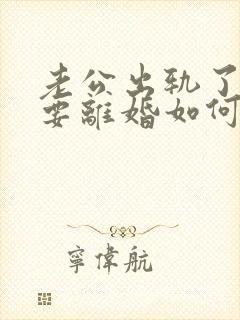 老公出轨了
要離婚如何
寧偉航